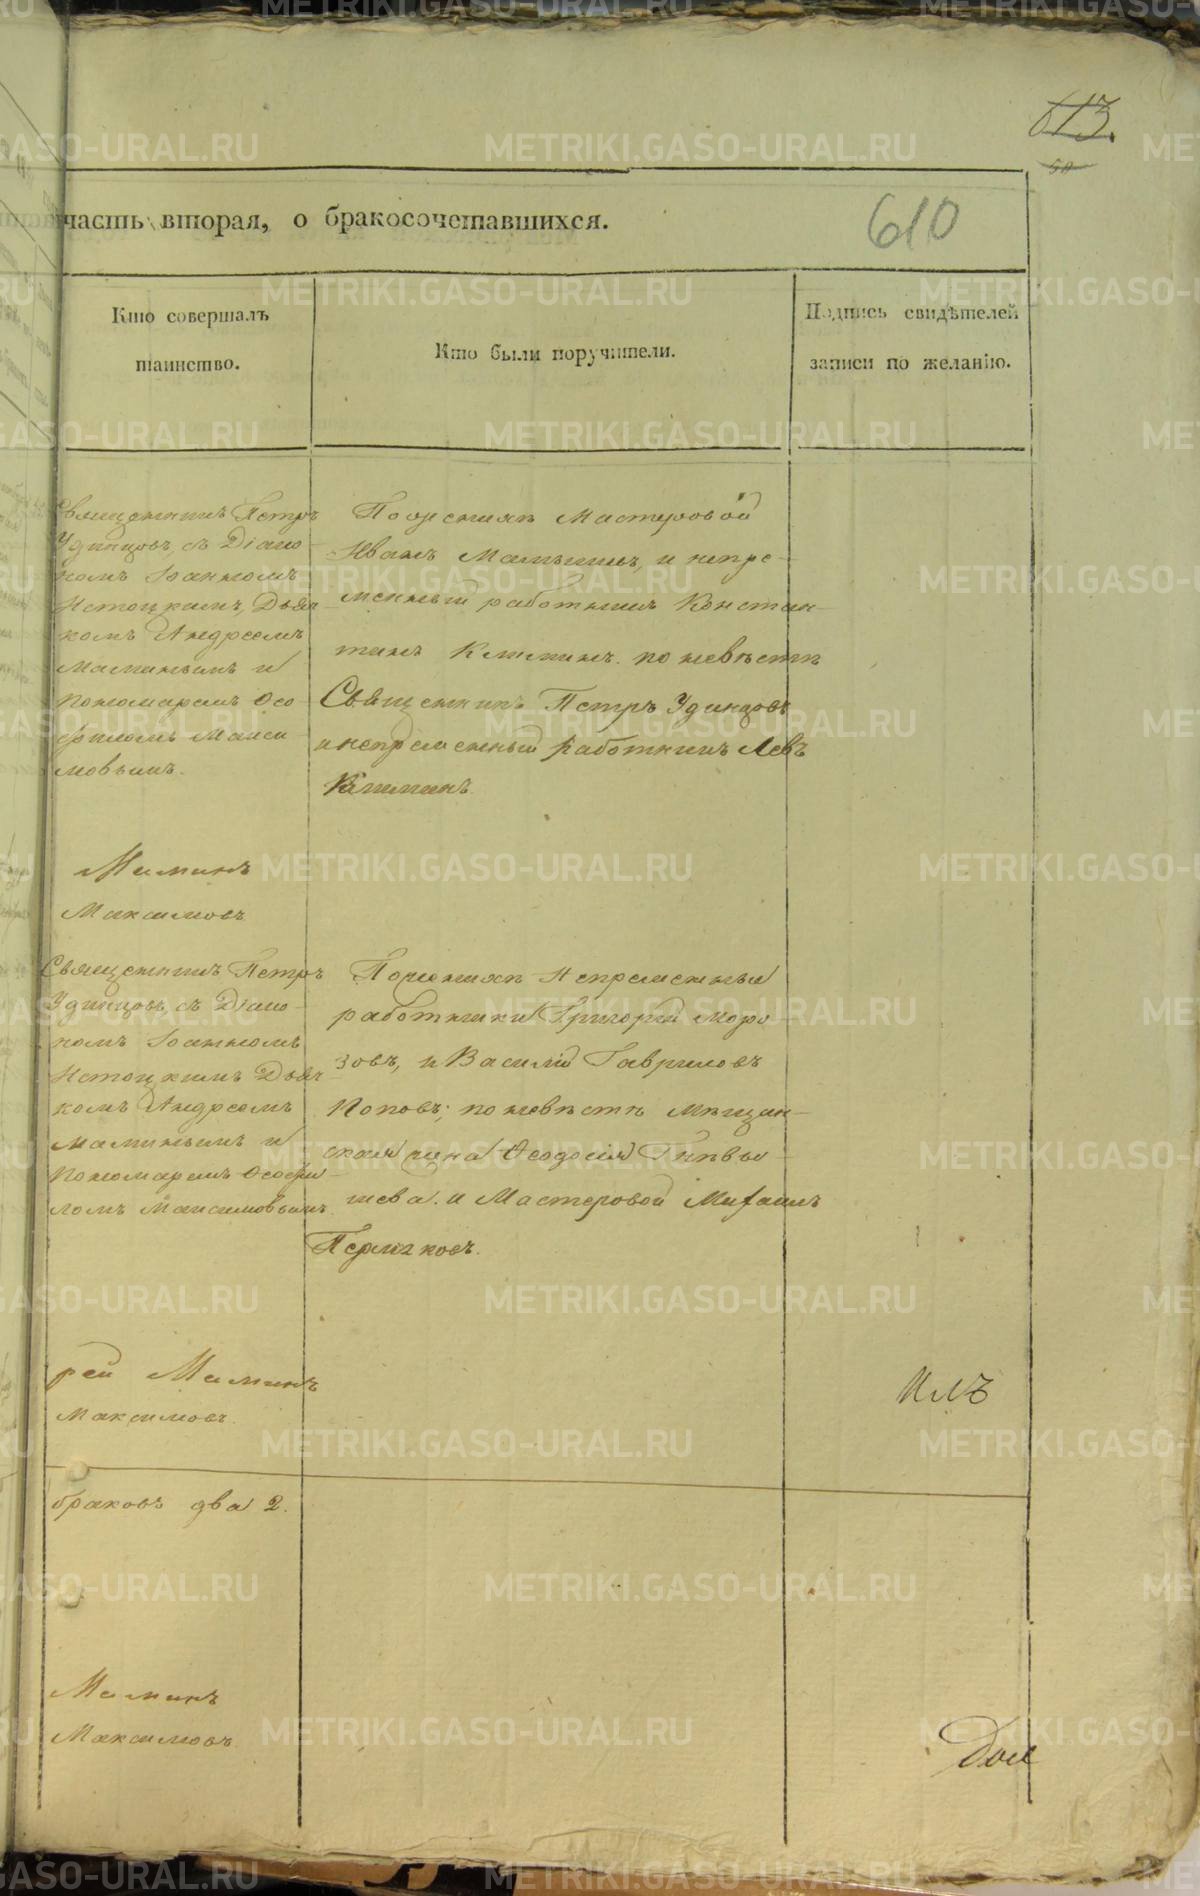 613.
50
610
часть вторая, о бракосочетавшихся.
Кто совершалъ
таинство.
Кто были поручители.
Подпись свидѣтелей
записи по желанію.
Священникъ Петръ
Удинцовъ, съ Діако-
номъ Іоанномъ
Истоцкимъ, Дьяч-
комъ Андреемъ
Маминымъ и
Пономаремъ Ѳео
филомъ Макси
мовымъ.
По женихѣ Мастеровой
Иванъ Мамынъ, и непре-
менный работникъ Констан-
тинъ Климинъ. по невѣстѣ
Священникъ Петръ Удинцовъ
и непременный работникъ Левъ
Климинъ.
Маминъ
Максимовъ
Священникъ Петръ
Удинцовъ, съ Діако-
номъ Іоанномъ
Истоцкимъ Дьяч-
комъ Андреемъ
Маминымъ и
Пономаремъ Ѳеофи-
ломъ Максимовымъ.
По женихѣ Непременные
работники Григорій Моро
зовъ, и Василій Гавриловъ
Поповъ; по невѣстѣ Мѣщан-
ская жена Ѳеодосія
шева. и Мастеровой Михаилъ
Пермяковъ.
рей Маминъ
Максимовъ
илъ
браковъ два 2.
Маминъ
Максимовъ
Дол
METRIKI.GASO-URAL.RU